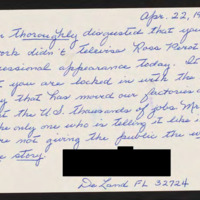 Apr. 22, 19
thoroughly disgusted that you
didn't televise Ross Perot
essional appearance today. It
you are locked in with the
that has moved our factories
the U.S. thousands of jobs. Mr
the only one who is telling it like i
re not giving the public the w
e story.
DeLand FL 32724